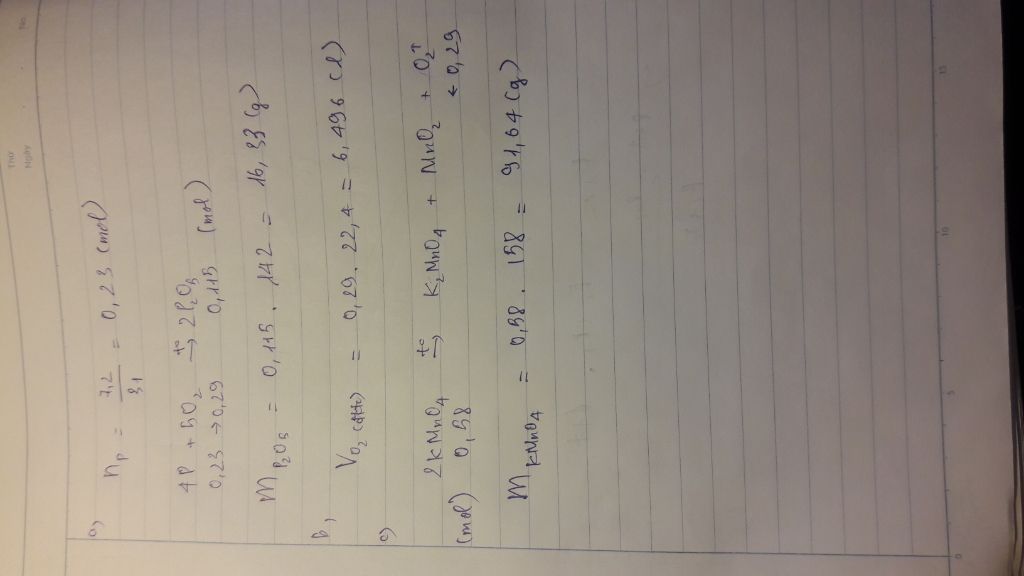 Thứ
Ngày
No
a,
n_P = 7,2/31 = 0,23 (mol)
4P + 5O₂ →(t°) 2P₂O₅
0,23 → 0,29 0,115 (mol)
m_P₂O₅ = 0,115 . 142 = 16,33 (g)
b,
V_O₂ (đktc) = 0,29 . 22,4 = 6,496 (l)
c)
2KMnO₄ →(t°) K₂MnO₄ + MnO₂ + O₂↑
(mol) 0,58 ← 0,29
m_KMnO₄ = 0,58 . 158 = 91,64 (g)
0 5 10 15